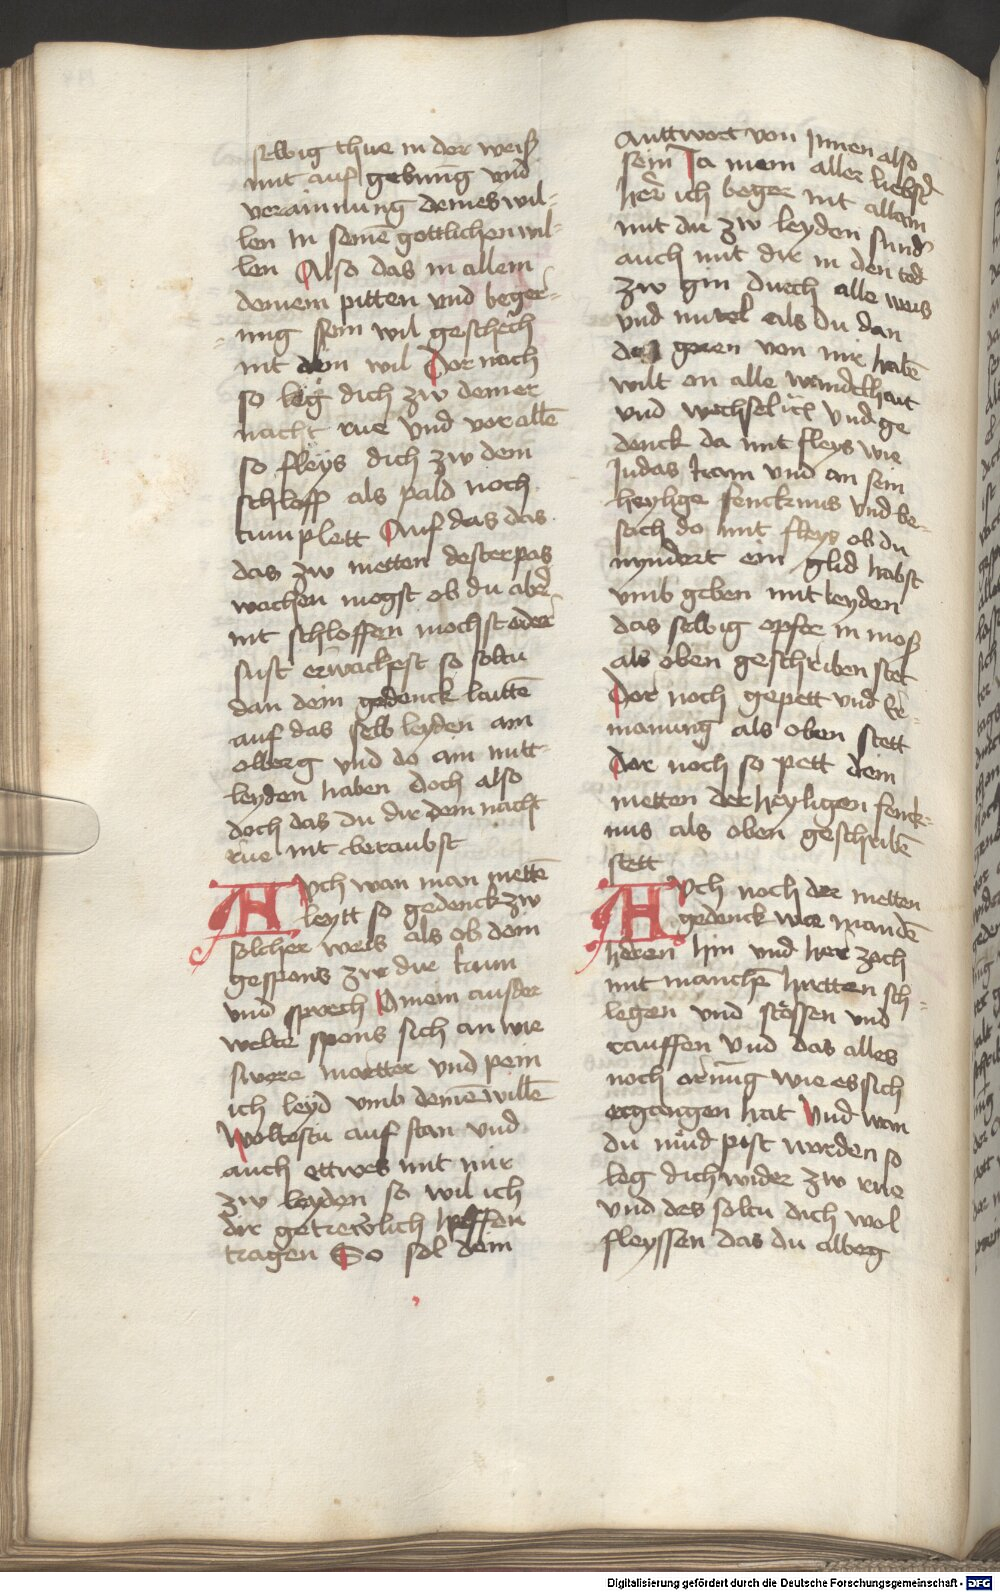 selbig thue in der weiß
mit auf gebung vnd
verainnung deines wil-
len In seinē gottlichen wil-
len Also das in allem
deinem pitten vnd beger-
ung sein wil geschech
nit dein wil Dor nach
so leg dich zw deiner
nacht rue vnd vor allē
so fleys dich zw dem
schloff als pald noch
cumplett Auf das das
das zw metten dester pas
wachen mogst ob du aber
nit schloffen mochst oder
sust erwachest so soltu
dan dein gedenck lauttē
auf das selb leyden am
olberg vnd do am mitt-
leyden haben doch also
doch das du dir dein nacht
rue nit beraubst
Auch wan man mettē
leytt so gedenck zw
solcher weis als ob dein
gespons zw dir kum
vnd sprech O mein ausder
welte spons sich an wie
swere martter vnd pein
ich leyd vmb deinē willē
Woltestu auf stan vnd
auch ettwes mit mir
zw leyden so wil ich
dir getrewlich helffen
tragen So sol dein
Anttwort von Innen also
sein Ja mein aller liebster
her ich beger nit allain
mit dir zw leyden sunder
auch mit dir in den tod
zw gin durch alle weis
vnd mitel als du dan
das geren von mir habē
wilt an alle wandelhait
vnd wechselūg vnd ge
denck da mit fleys wie
Judas kam vnd an sein
heylige fencknus vnd be-
sich do mit fleys ob du
nyndert ein glid habst
vmb geben mit leyden
das selbig opfer in moß
als oben geschriben stet
Dor noch gepett vnd Er-
manung als oben stett
Dor noch so pett dein
metten der heyligen fenck-
nus als oben geschribē
stett
Auch noch der metten
gedenck wie man dē
heren hin vnd her zoch
mit manchē hertten sch-
legen vnd stössen vnd
rauffen vnd das alles
noch ornūg wie es sich
ergangen hat Vnd wan
du müd pist worden so
leg dich wider zw rue
vnd des soltu dich wol
fleyssen das du alberg
Digitalisierung gefördert durch die Deutsche Forschungsgemeinschaft - DFG